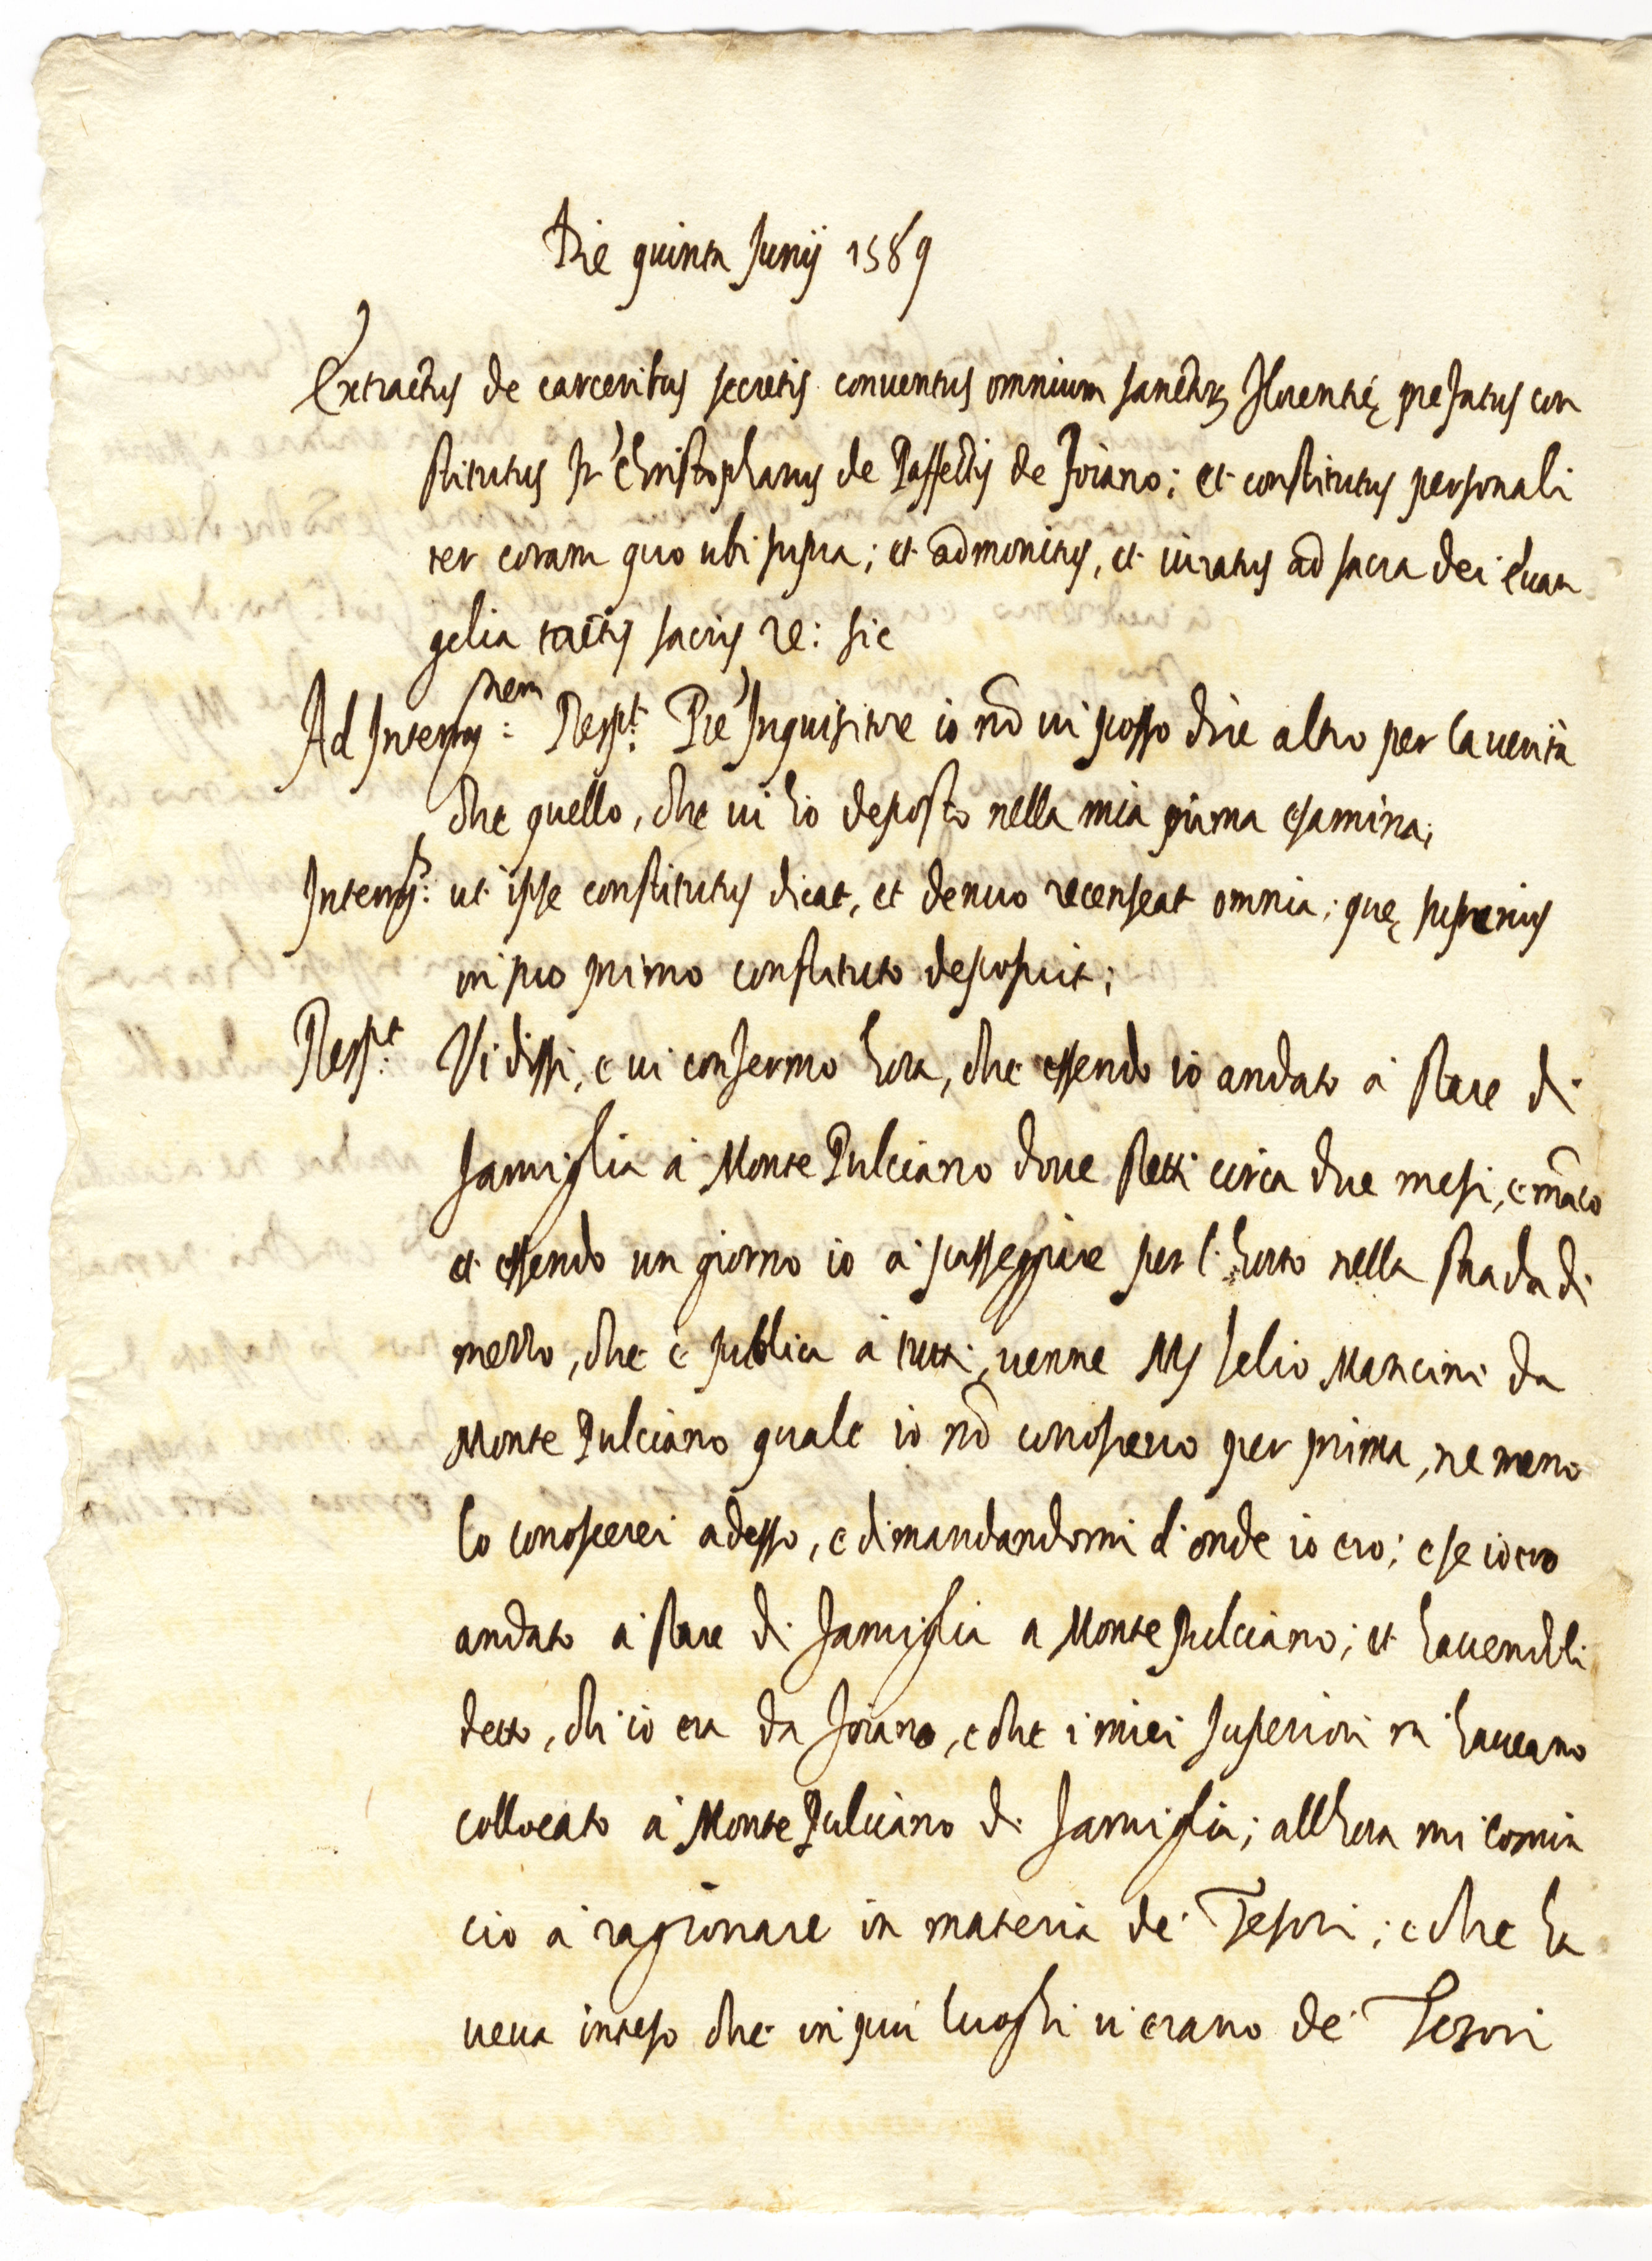 Die quinta Junij 1589
Extractus de carceribus secretis conventus omnium sanctor̨ Florentię prefatus con
stitutus fr Christophanus de Paffectis de Foiano; et constitutus personali
ter coram quo ubi supra; et admonitus, et iuratus ad sacra dei evan
gelia tactis sacris re: sic
Ad Interrog:nem Resp:t Pre Inquisitore io nō vi posso dire altro per la verità
che quello, che vi hò deposto nella mia prima esamina;
Interrog:s ut ipse constitutus dicat, et denuo recenseat omnia; quę superius
in suo primo constituto deposuit;
Resp:t Vi dissi, e vi confermo hora, che essendo io andato à stare di
famiglia à Monte Pulciano dove stetti circa due mesi, e māco
et essendo un giorno io à passeggiare per l'horto nella strada di
mezzo, che è publica à tutti, venne Ms Lelio Mancini da
Monte Pulciano quale io nō conoscevo per prima, ne meno
lo conoscerei adesso, e dimandandomi d'onde io ero; e se io ero
andato à stare di famiglia a Monte Pulciano; et havendoli
detto, ch'io era da Foiano, e che i miei superiori m'haveano
collocato à Monte Pulciano di famiglia; allhora mi comin
ciò à ragionare in materia de Tesori; e che ha
veva inteso che in più luoghi v'erano de Tesori